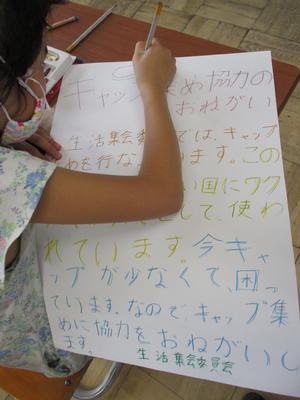 キャッ 集め協力の
おねがい
生活集会委 では、キャップ
めを行な ます。この
い国にワク
して、使わ
れています。今キャ
ップが少なくて、困っ
ています。なので、キャップ集
めに協力をおねがいし
ます。
生活集会委員会